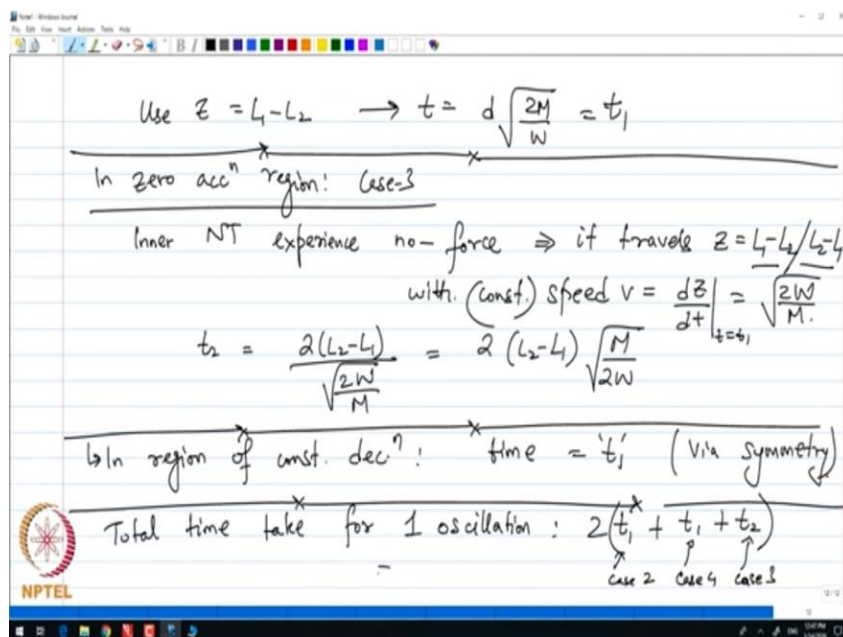 Note1 - Windows Journal
File Edit View Insert Actions Tools Help
Use Z = L₁-L₂ → t = d √(2M/W) = t₁
In zero accⁿ region: Case-3
Inner NT experience no-force ⇒ it travels Z = L₁-L₂/L₂-L₁
with (const.) speed v = dZ/dt|t=t₁ = √(2W/M).
t₂ = 2(L₂-L₁)/√(2W/M) = 2 (L₂-L₁) √(M/2W)
↳ In region of const. decⁿ: time = 't₁' (via symmetry)
Total time take for 1 oscillation : 2(t₁ + t₁ + t₂)
case 2 case 4 case 3
=
NPTEL